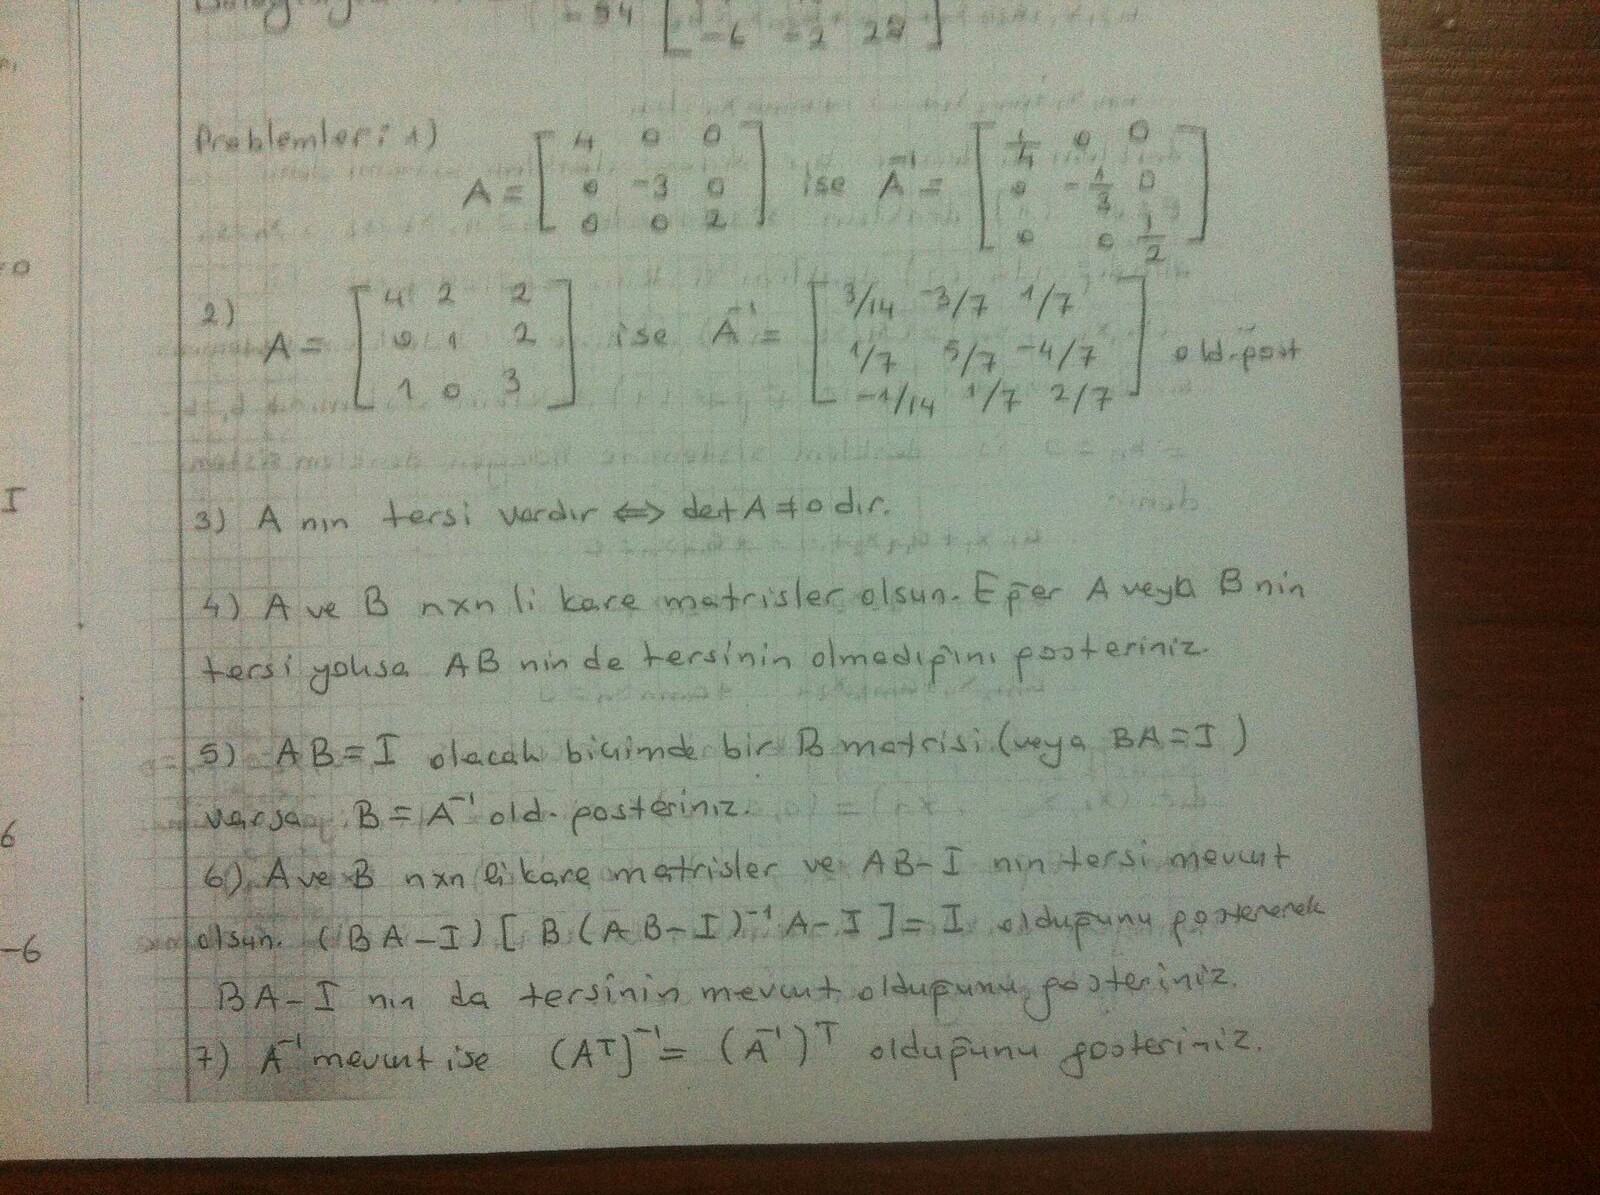 = 94 [ -6 -2 28 ]
Problemleri 1)
A = [ 4 0 0
0 -3 0
0 0 2 ] ise A⁻¹ = [ 1/4 0 0
0 -1/3 0
0 0 1/2 ]
2)
A = [ 4 2 2
0 1 2
1 0 3 ] ise A⁻¹ = [ 3/14 -3/7 1/7
1/7 5/7 -4/7
-1/14 1/7 2/7 ] old. göst
3) A nın tersi vardır ⇔ det A ≠ 0 dır.
4) A ve B nxn li kare matrisler olsun. Eğer A veya B nin
tersi yoksa AB nin de tersinin olmadığını gösteriniz.
5) AB = I olacak biçimde bir B matrisi (veya BA = I)
varsa B = A⁻¹ old. gösteriniz.
6) A ve B nxn li kare matrisler ve AB - I nın tersi mevcut
olsun. (BA - I) [ B (AB - I)⁻¹ A - I ] = I olduğunu göstererek
BA - I nın da tersinin mevcut olduğunu gösteriniz.
7) A⁻¹ mevcut ise (Aᵀ)⁻¹ = (A⁻¹)ᵀ olduğunu gösteriniz.
I
6
-6